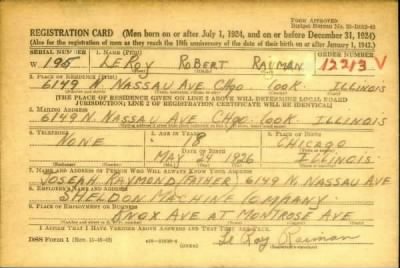 FORM APPROVED
REGISTRATION CARD (Men born on or after July 1, 1924, and on or before December 31, 1924)
(Also for the registration of men as they reach the 18th anniversary of the date of their birth on or after January 1, 1943.)
SERIAL NUMBER 1. NAME (Print) ORDER NUMBER
W 195 LEROY ROBERT RAUMAN 12213 V
2. PLACE OF RESIDENCE (Print)
6149 N NASSAU AVE CHgo. COOK ILLINOIS
[THE PLACE OF RESIDENCE GIVEN ON LINE 2 ABOVE WILL DETERMINE LOCAL BOARD
JURISDICTION; LINE 2 OF REGISTRATION CERTIFICATE WILL BE IDENTICAL]
3. MAILING ADDRESS
6149 N. NASSAU AVE CHgo. COOK. ILLINOIS
4. TELEPHONE 5. AGE IN YEARS 6. PLACE OF BIRTH
NONE 18 CHICAGO
DATE OF BIRTH
MAY 29 1926 ILLINOIS
7. NAME AND ADDRESS OF PERSON WHO WILL ALWAYS KNOW YOUR ADDRESS
JOSEPH RAYMOND (FATHER) 6149 N. NASSAU AVE
8. EMPLOYER'S NAME AND ADDRESS
SHELDON MACHINE COMPANY
9. PLACE OF EMPLOYMENT OR BUSINESS
KNOX AVE AT MONTROSE AVE
I AFFIRM THAT I HAVE VERIFIED ABOVE ANSWERS AND THAT THEY ARE TRUE.
DSS FORM 1 Le Roy Rauman